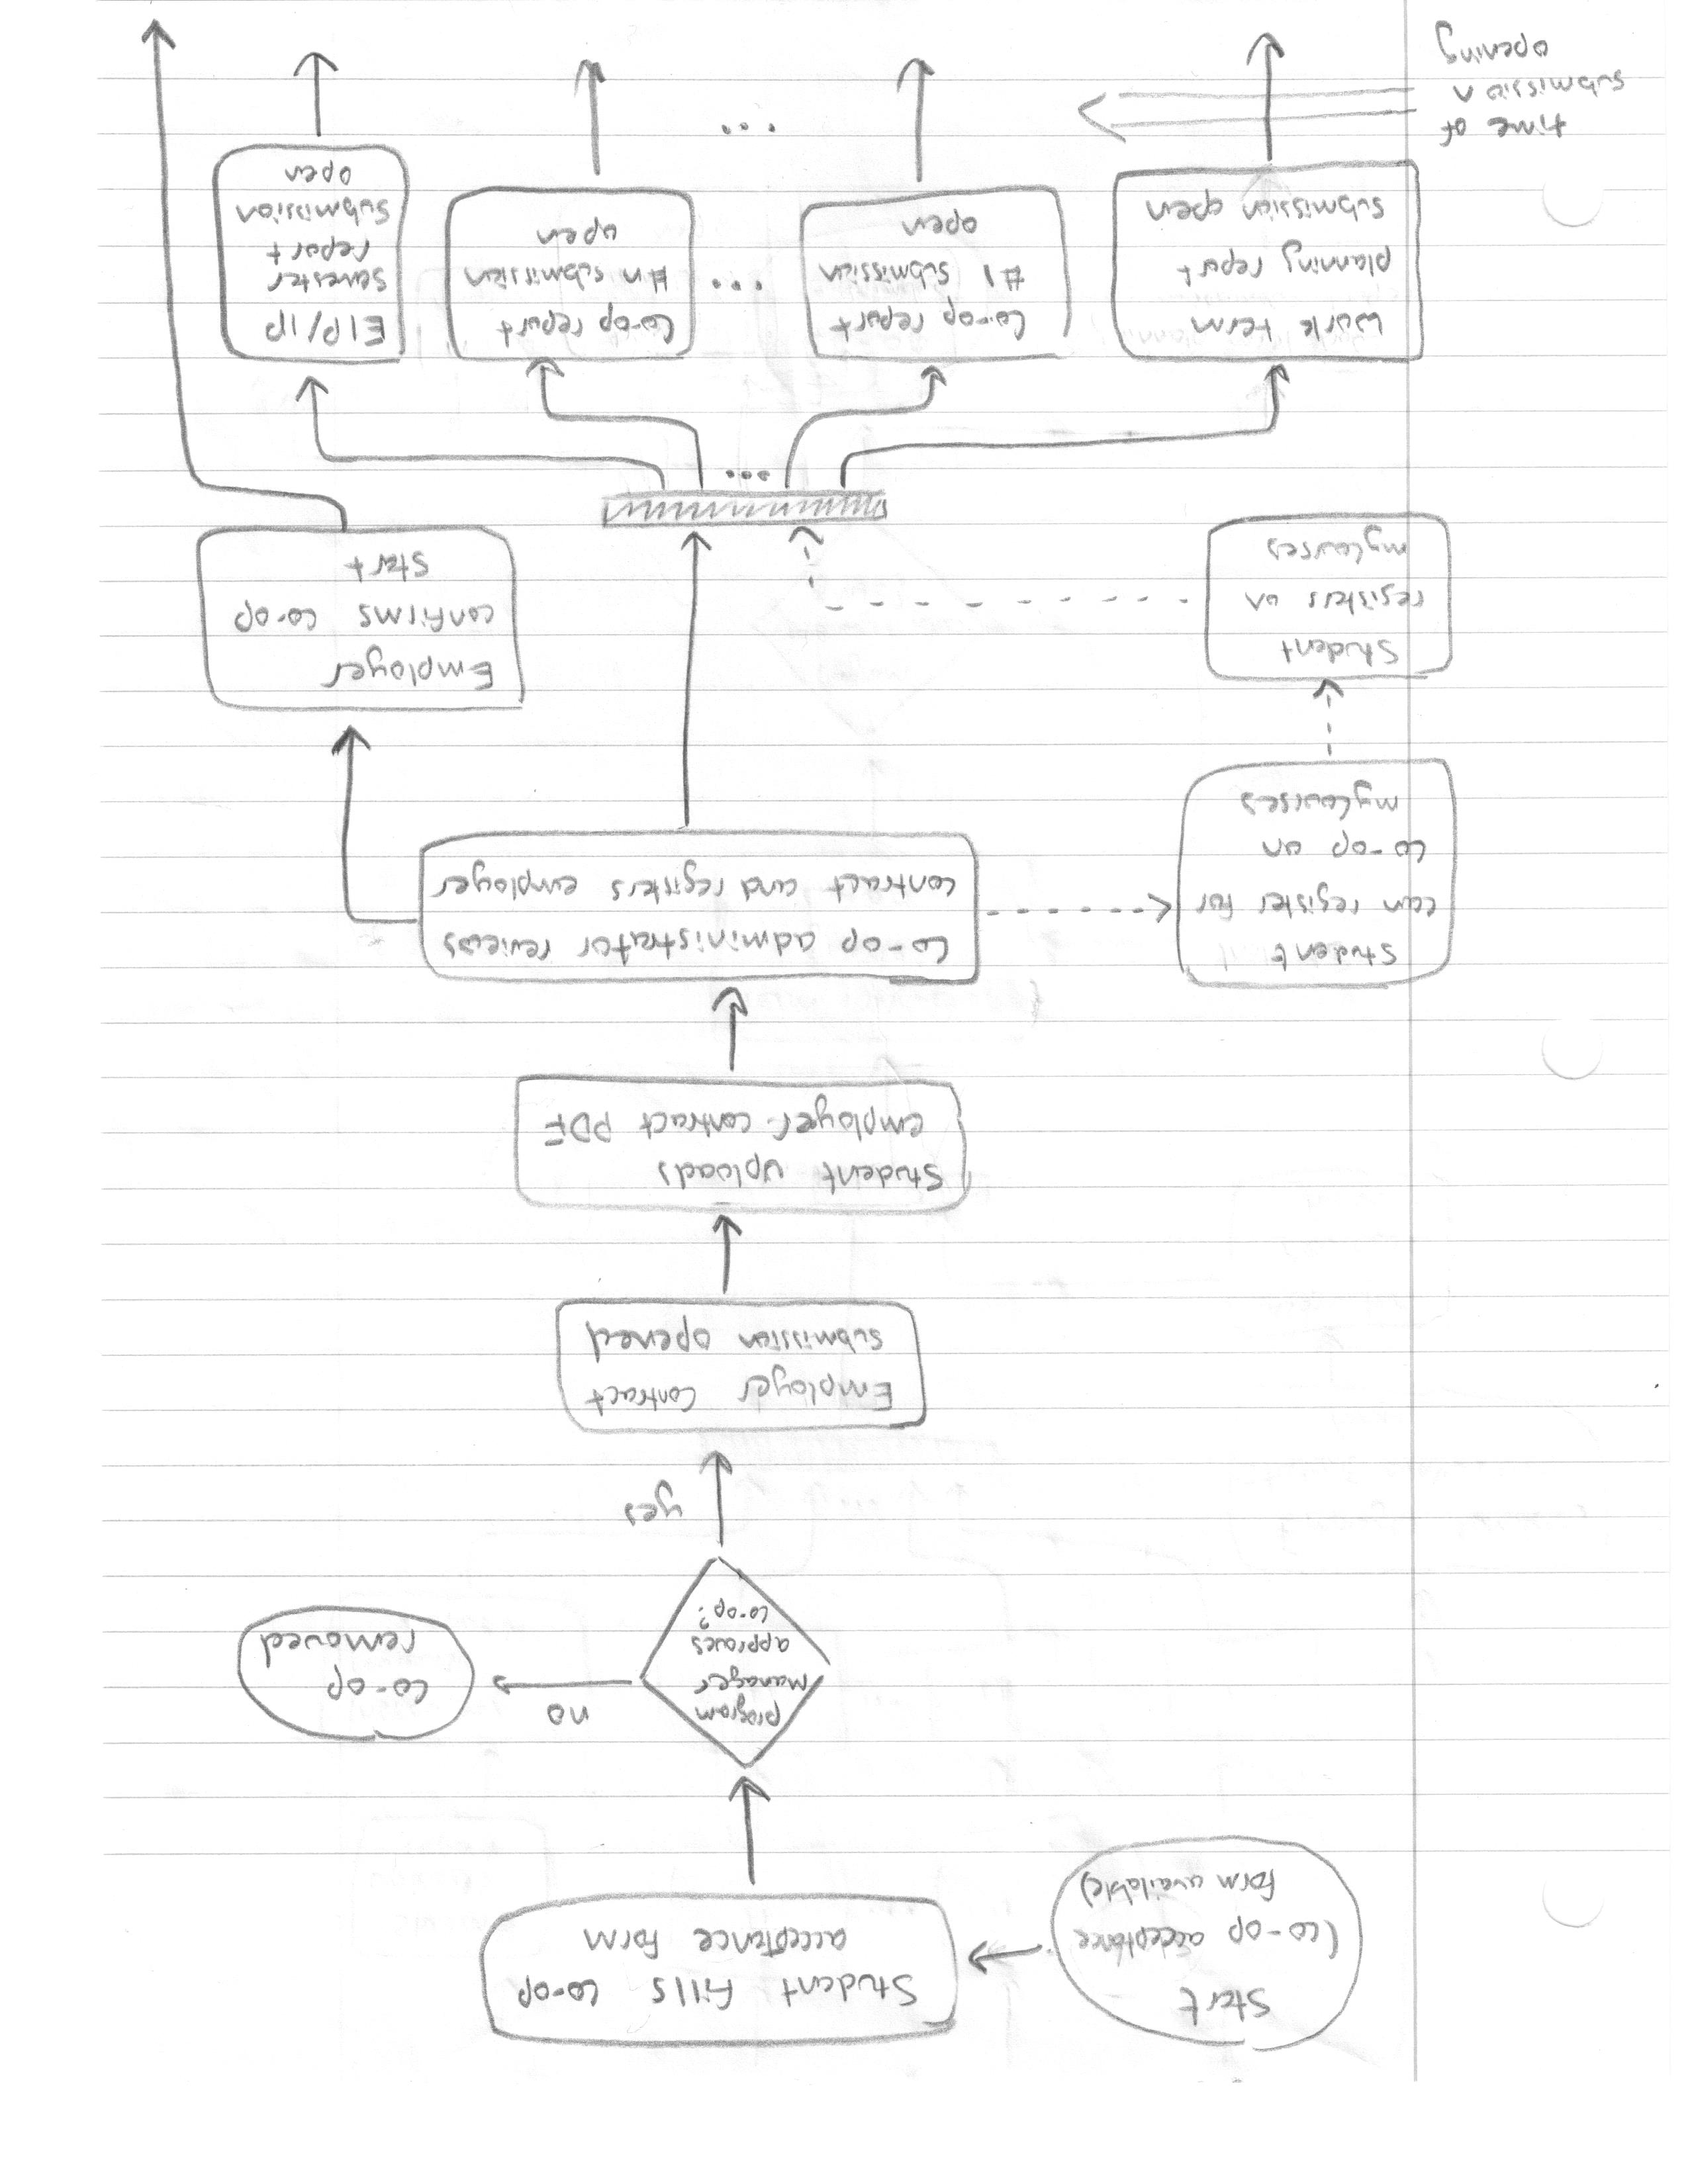 Start
(co-op acceptance
form available)
Student fills co-op
acceptance form
program
manager
approves
co-op?
no
co-op
removed
yes
Employer contract
submission opened
Student uploads
employer contract PDF
Co-op administrator reviews
contract and registers employer
Student
can register for
co-op on
myCourses
Student
registers on
myCourses
Employer
confirms co-op
start
...
Work term
planning report
submission open
Co-op report
#1 submission
open
...
Co-op report
#n submission
open
EIP/IP
semester
report
submission
open
time of
submission
opening
...